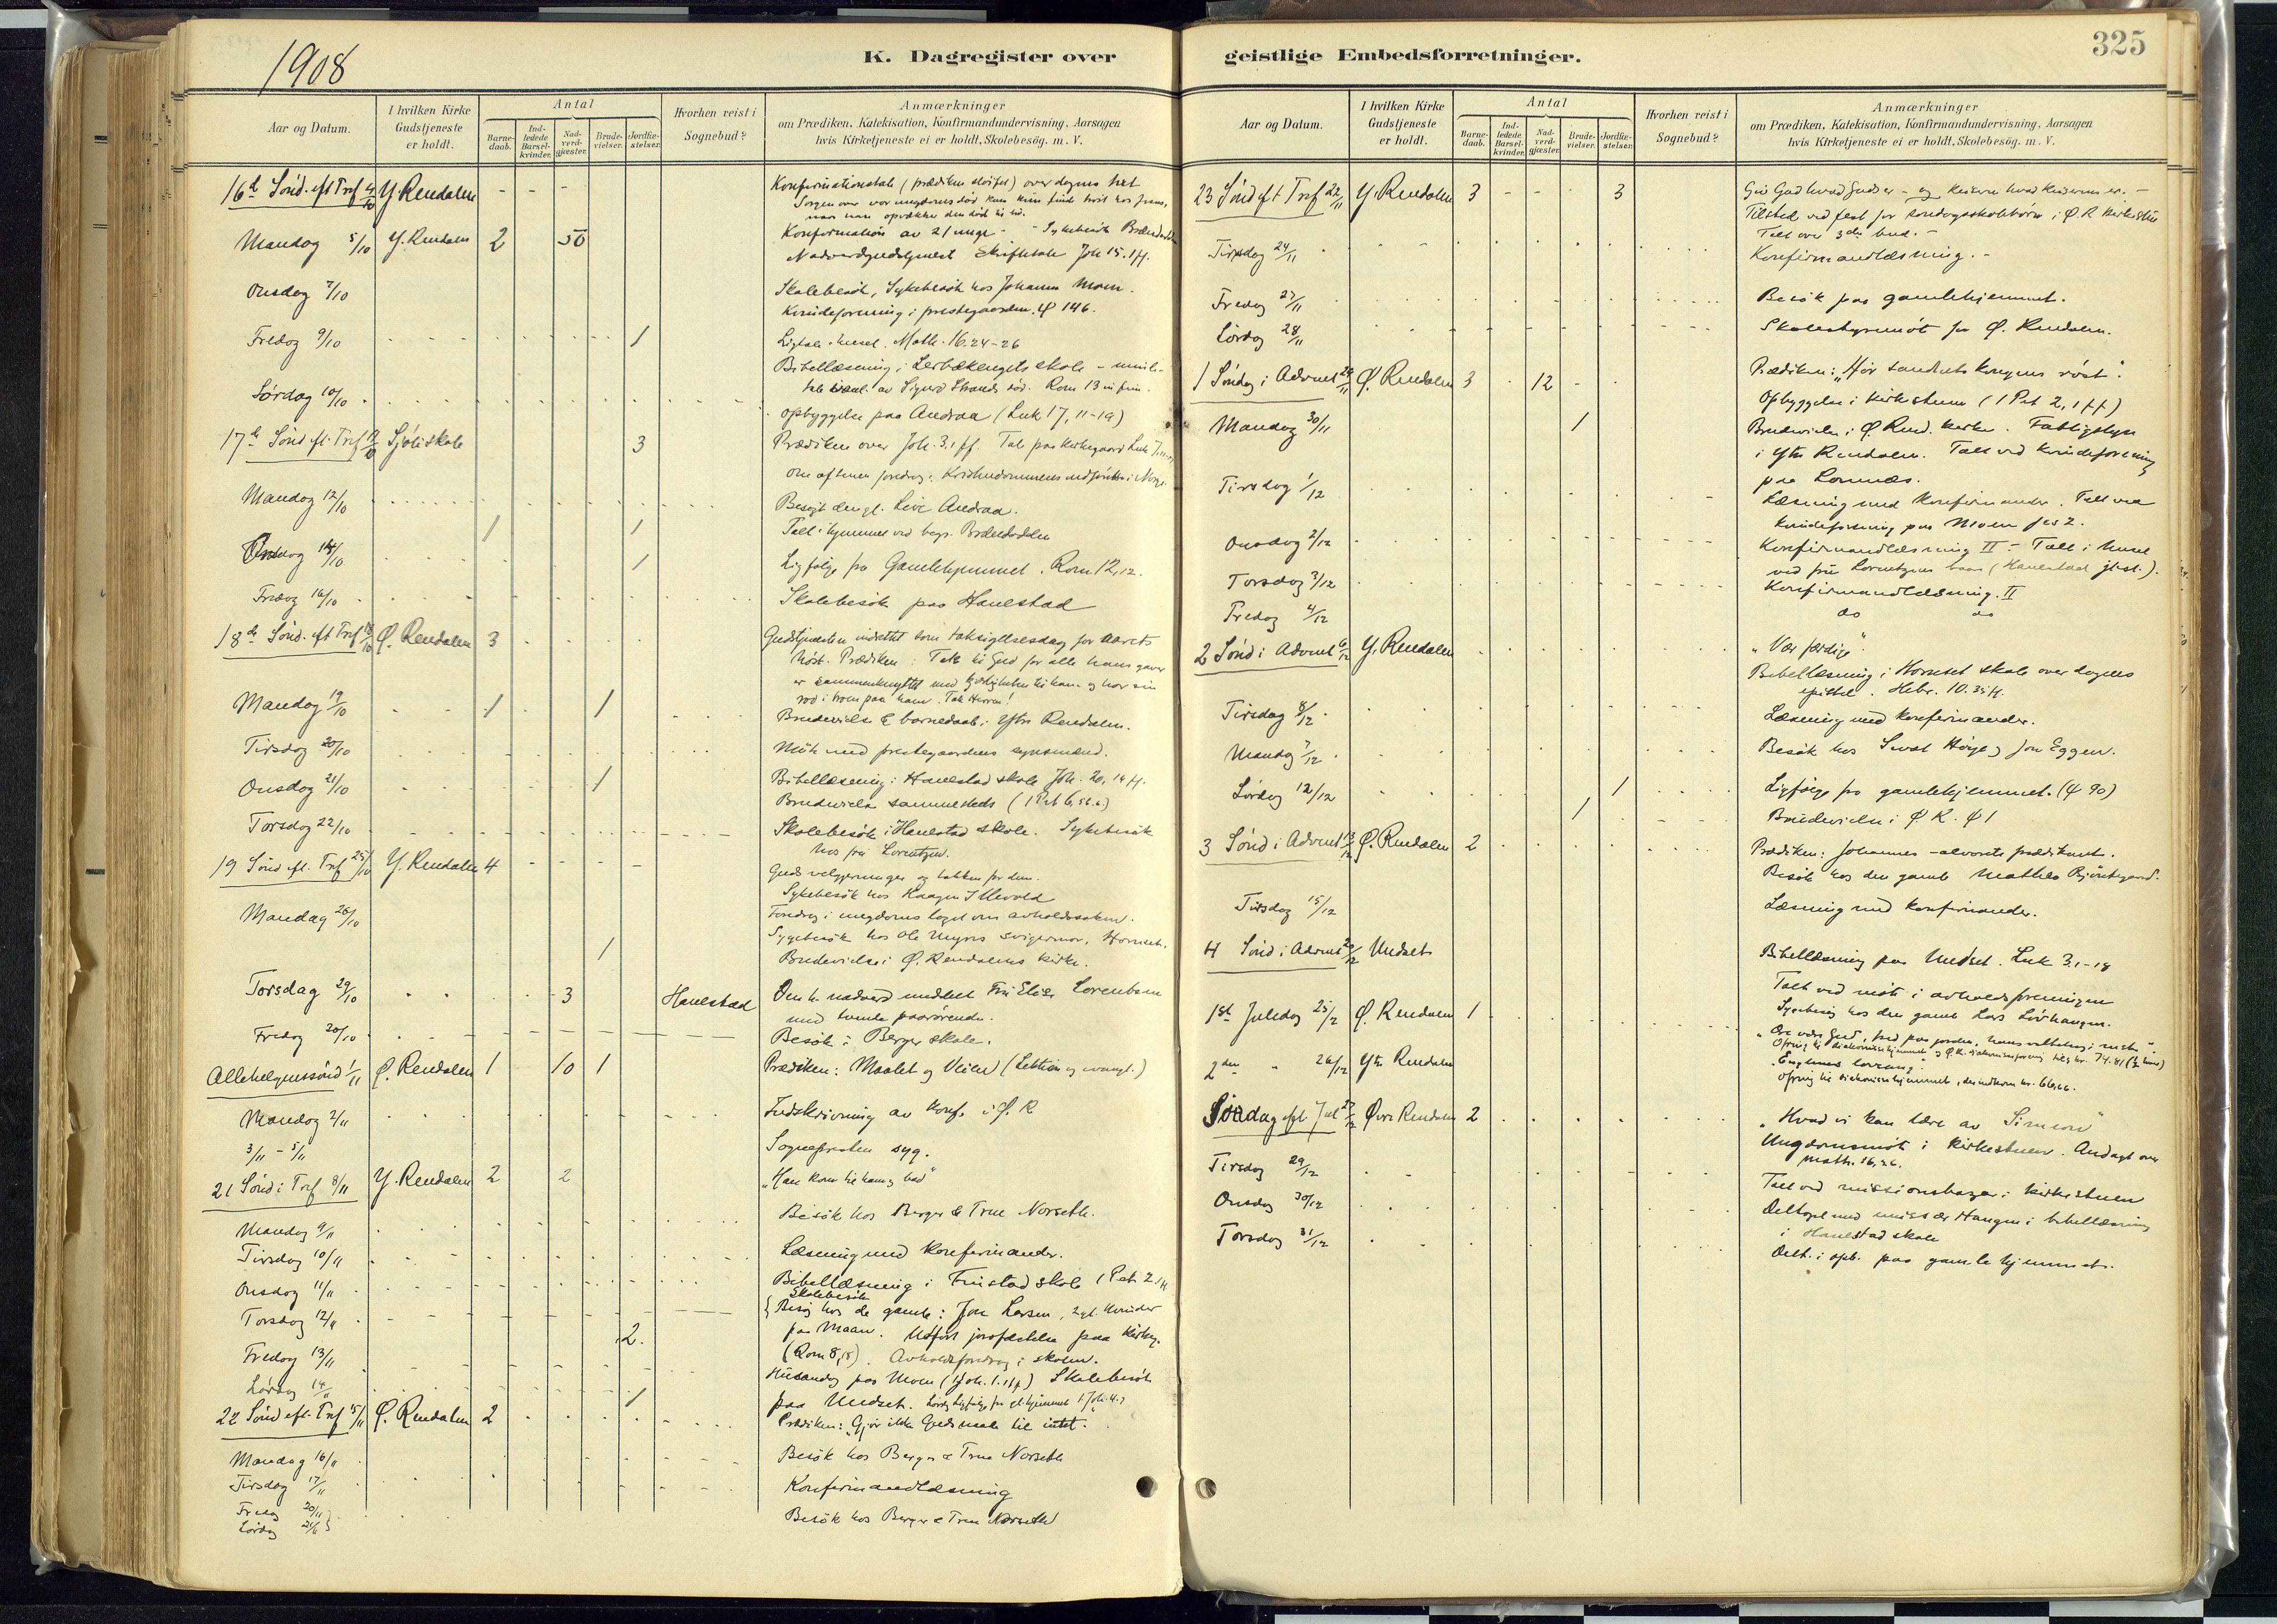 1908
K. Dagregister over
Aar og Datum.
I hvilken Kirke Gudstjeneste er holdt.
Antal
Barne-daab.
Ind-ledede Barsel-kvinder.
Nad-verd-gjæster.
Brude-vielser.
Jordfæ-stelser.
Hvorhen reist i Sognebud?
Anmærkninger
om Prædiken, Katekisation, Konfirmandundervisning, Aarsagen
hvis Kirketjeneste ei er holdt, Skolebesög. m. V.
16d Sönd. eft Tref 4/10 Y. Rendalen - - -
Konfirmationstale (prædiken sløifet) over dagens text
Sorgen over vor ungdoms død kan kun finde trøst hos Jesus,
naar han opvækker den død til liv.
Mandag 5/10 Y. Rendalen 2 50 Konfirmation av 21 unge - - Sykebesök
Nadverdgudstjenest Skriftetale Joh 15.1ff.
Onsdag 7/10 Skolebesök, Sykebesök hos Johannes Moen.
Kvindeforening i prestegaarden. ψ 146.
Fredag 9/10 1 Ligtale i huset. Math. 16.24-26
Bibellæsning i skole -
av Sigurd Strands död. Rom 13
Lørdag 10/10 opbyggelse paa Andraa (Luk 17, 11-19)
17d Sönd eft. Tref 11/10 Sjøli skole 3 Prædiken over Joh. 3.1 ff. Tale paa kirkegaard Luk 7, 11-17
om aftenen foredrag: Kristendommens indförelse i Norge.
Mandag 12/10 Besøgt den gl. Live Andraa.
1 1 Talt i hjemmet ved begr.
Onsdag 14/10 1 Ligfølge fra Gamlehjemmet. Rom 12,12.
Fredag 16/10 Skolebesök paa Hanestad
18de Sönd. eft Tref 18/10 Ø. Rendalen 3 Gudstjenesten indrettet som taksigelsesdag for aarets
höst. Prædiken: Takk til Gud for alle hans gaver
er sammenknyttet med kjærligheten til ham og har sin
rod i troen paa ham. Tak Herren!
Mandag 19/10 1 1 Brudevielse & barnedaab i Ytre Rendalen.
Tirsdag 20/10 Møte med prestegaardens synsmænd.
Onsdag 21/10 1 Bibellæsning i Hanestad skole Joh. 20, 19 ff.
Brudevielse sammesteds
Torsdag 22/10 Skolebesök i Hanestad skole. Sykebesök
hos fru Lorentzen.
19 Sönd eft. Tref 25/10 Y. Rendalen 4 Guds velgjerninger og takken for dem.
Sykebesök hos Haagen Illevold
Mandag 26/10 Foredrag i ungdomslaget om avholdssaken.
Sygebesök hos Ole Myres svigermor, Hornset.
1 Brudevielse i Ø. Rendalens kirke.
Torsdag 29/10 3 Hanestad Den h. nadverd meddelt Fru Elise Lorentzen
med tvende paarørende.
Fredag 30/10 Besök i Berger skole.
Allehelgenssönd 1/11 Ø. Rendalen 1 10 1 Prædiken: Maalet og Veien (Lektion og evangl.)
Mandag 2/11 Indskrivning av konf. i Ø. R
3/11 - 5/11 Sognepresten syg.
21 Sönd i Tref 8/11 Y. Rendalen 2 2 "Han kom til ham og bad"
Mandag 9/11 Besök hos Berger & Trine Norseth.
Tirsdag 10/11 Læsning med konfirmander.
Onsdag 11/11 Bibellæsning i Finstad skole 1 Pet. 2.1ff
Skolebesök
Torsdag 12/11 Besøg hos de gamle: Jon Larsen, 2 gl. kvinder
2. paa Maan. Utført jordfæstelse paa kirkeg.
Fredag 13/11 (Rom 8,18). Avholdsforedrag i skolen.
Lørdag 14/11 Husandag paa Moen (1 Joh. 1.1ff) Skolebesök
1 paa Undset. Lørdag Ligfølge fra gl. hjemmet 1 Joh. 4.7
22 Sönd eft. Tref 15/11 Ø. Rendalen 2 Prædiken: "Gjør ikke Guds naade til intet."
Mandag 16/11 Besök hos Berger & Trine Norseth
Tirsdag 17/11 Konfirmandlæsning
Fredag 20/11
Lørdag 21/11 Besök hos Berger & Trine Norseth
geistlige Embedsforretninger.
325
Aar og Datum.
I hvilken Kirke Gudstjeneste er holdt.
Antal
Barne-daab.
Ind-ledede Barsel-kvinder.
Nad-verd-gjæster.
Brude-vielser.
Jordfæ-stelser.
Hvorhen reist i Sognebud?
Anmærkninger
om Prædiken, Katekisation, Konfirmandundervisning, Aarsagen
hvis Kirketjeneste ei er holdt, Skolebesög. m. V.
23 Sönd eft Tref 22/11 Y. Rendalen 3 - - 3 Giv Gud hvad Guds er - og keiseren hvad keiserens er. -
Tilsted ved fest for søndagsskolebörn i Ø. R kirkestue
Talt over 3die bud. -
Tirsdag 24/11 Konfirmandlæsning. -
Fredag 27/11 Besök paa gamlehjemmet.
Lørdag 28/11 Skolestyremöt for Ø. Rendalen.
1 Söndag i Advent 29/11 Ø. Rendalen 3 12 Prædiken: "Hör sandhets kongens röst".
Opbyggelse i kirkestuen (1 Pet 2, 1 ff)
Mandag 30/11 1 Brudevielse i Ø. Rend. kirke. Fattigstyre
i Ytre Rendalen. Talt ved kvindeforening
paa Lomnæs.
Tirsdag 1/12 Læsning med konfirmander. Talt ved
kvindeforening paa Moen Jes 2.
Onsdag 2/12 Konfirmandlæsning II - Talt i huset
ved fru Lorentzens baare (Hanestad jb.st.).
Torsdag 3/12 Konfirmandlæsning. II
Fredag 4/12 do do
2 Sönd i Advent 6/12 Y. Rendalen "Vær færdige".
Bibellæsning i Hornset skole over dagens
epistel. Hebr. 10.35ff.
Tirsdag 8/12 Læsning med konfirmander.
Mandag 7/12 Besök hos Sivert Høye og Jon Eggen.
Lørdag 12/12 1 Ligfølge fra gamlehjemmet. (ψ 90)
1 Brudevielse i Ø R. ψ 1
3 Sönd i Advent 13/12 Ø. Rendalen 2 Prædiken: Johannes - alvorets prædikant.
Besök hos den gamle Mathea
Tirsdag 15/12 Læsning med konfirmander.
4 Sönd i Advent 20/12 Undset Bibellæsning paa Undset. Luk 3.1-18
Talt ved möte i avholdsforeningen
Sygebesøg hos den gamle Lars Lövhaugen.
1ste Juledag 25/12 Ø. Rendalen 1 "Ære være Gud, fred paa jorden, hans velbehag i msk."
Ofring til diakonissehjemmet og Ø.R. diakonisseforening tils kr. 74.81
2den " 26/12 Ytre Rendalen "Englenes lovsang".
Ofring til diakonissehjemmet, der indkom kr. 66,66.
Söndag eft. Jul 27/12 Øvre Rendalen 2 "Hvad vi kan lære av Simeon"
Ungdomsmöt i kirkestuen. Andagt over
Math. 16,26.
Tirsdag 29/12 Talt ved missionsbazar i kirkestuen
Onsdag 30/12 Deltaget med miss. ær Haugen i bibellæsning
i Hanestad skole
Torsdag 31/12 Delt. i opb. paa gamlehjemmet.